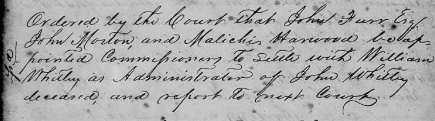 Ordered by the Court that John Furr Esq
John Morton, and Malichi Harwood be ap-
pointed Commissioners to settle with William
Whitley as Administrator of John Whitley
deceased, and report to next Court.